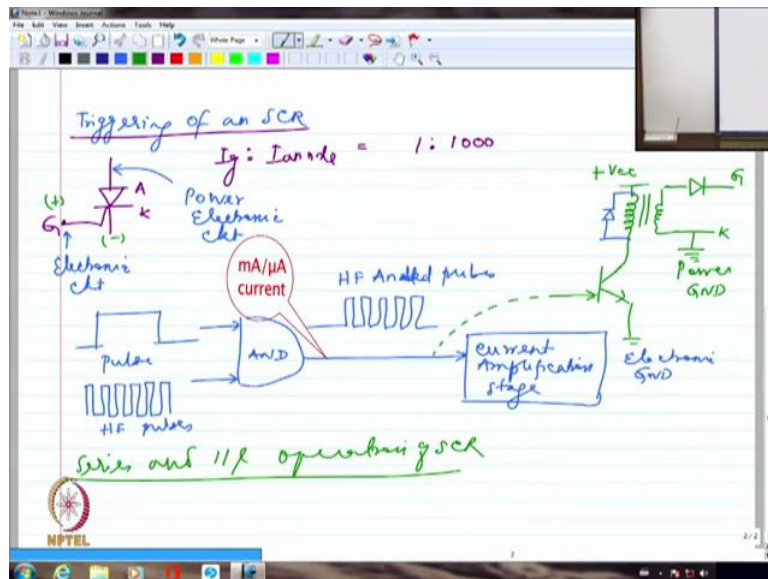 Note1 - Windows Journal
File Edit View Insert Actions Tools Help
Whole Page
B I
Triggering of an SCR
Ig : Ianode = 1 : 1000
(+)
G
A
K
(-)
Power
Electronic
ckt
Electronic
ckt
+Vcc
G
K
Power
GND
mA/μA
current
HF Anded pulses
Pulse
AND
HF pulses
current
Amplification
stage
Electronic
GND
Series and 11l operation of SCR
NPTEL
2/2